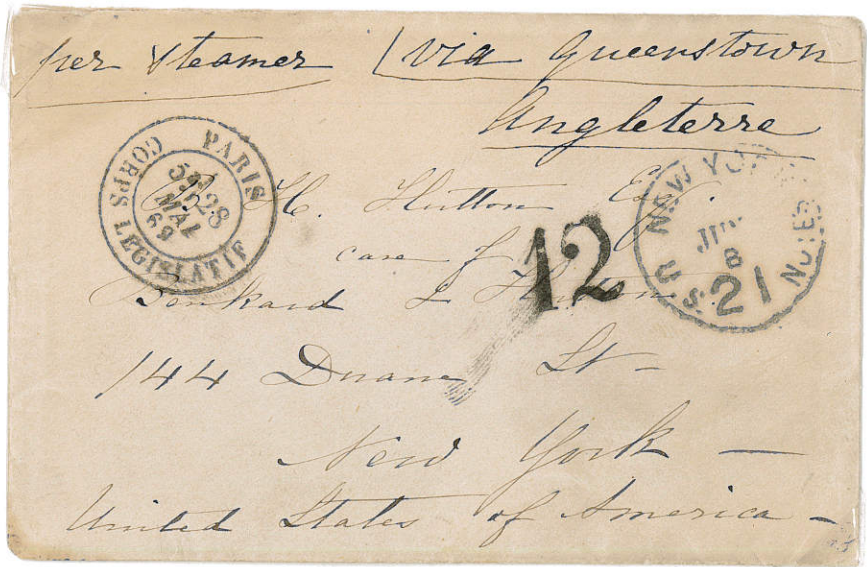 per steamer / via Queenstown
Angleterre
PARIS
CORPS LEGISLATIF
5E
28
MAI
69
NEW YORK
JUN
8
U.S. 21 NOTES
12
B. H. Hutton Esq.
care of
Benkard & Hutton
144 Duane St -
New York -
United States of America -